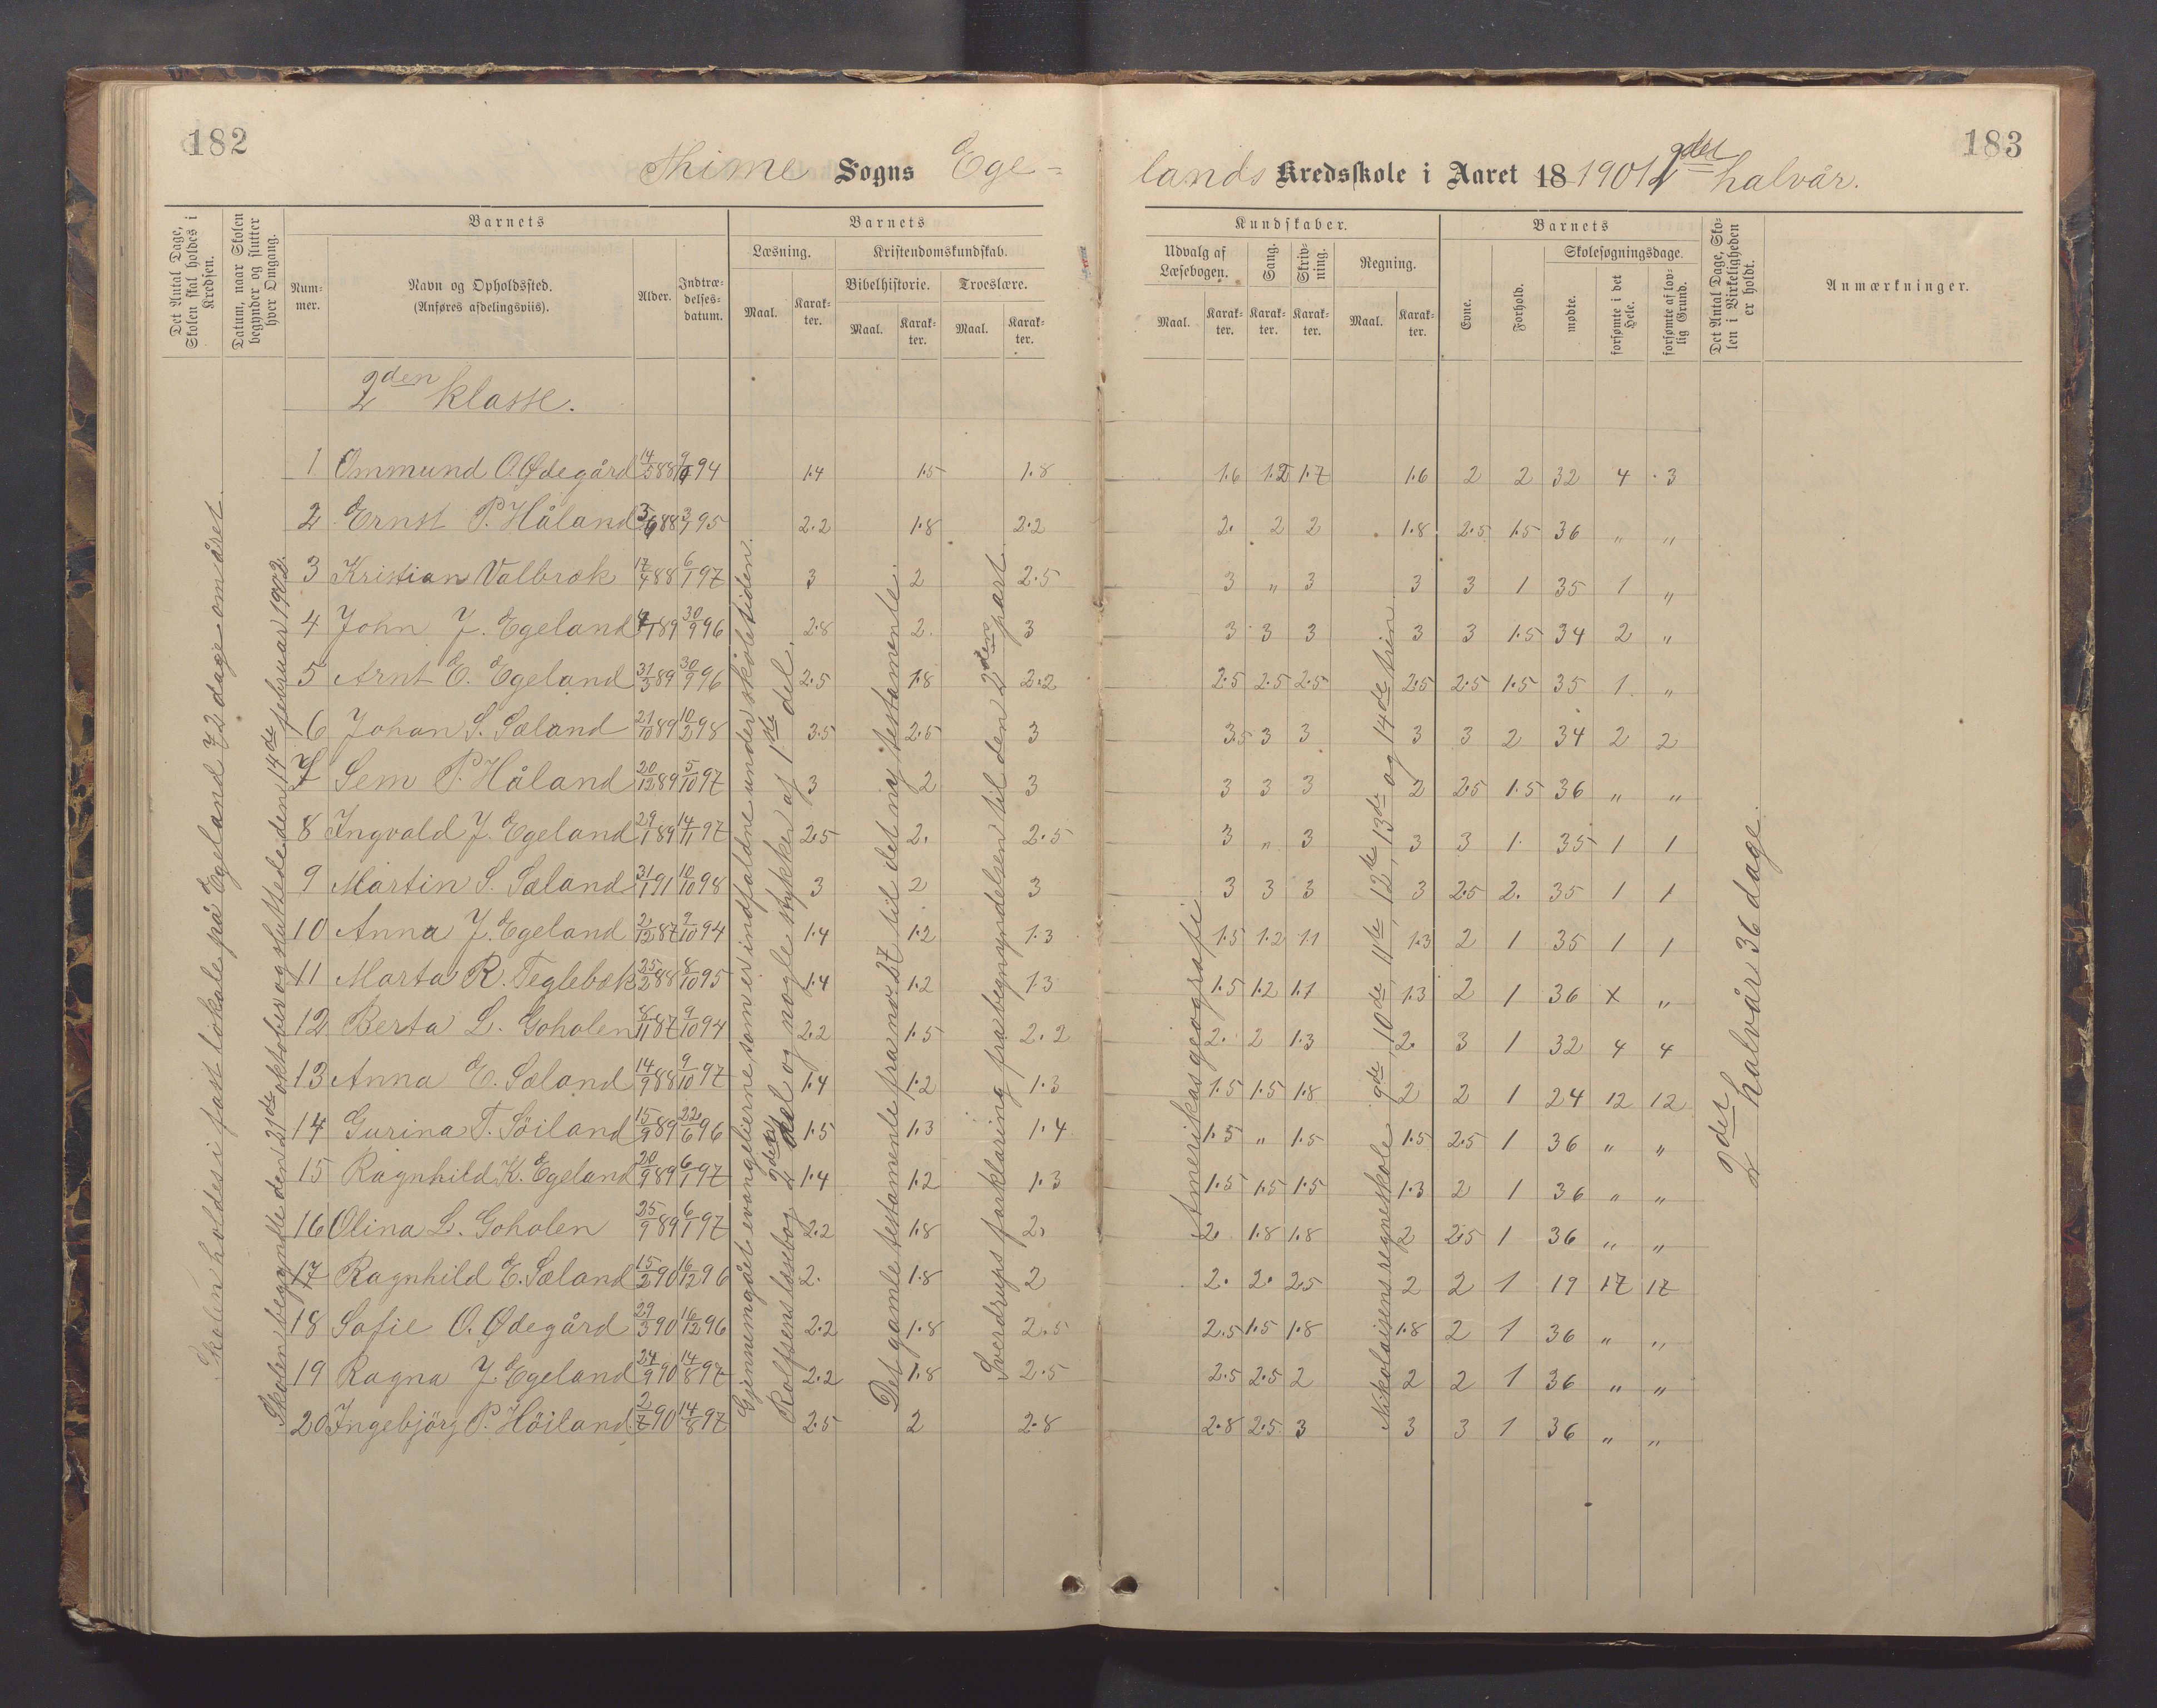 182
183
Thime Sogns Ege-
lands Kredsskole i Aaret 18 1901 2det halvår.
Det Antal Dage, Skolen skal holdes i Kredsen.
Datum, naar Skolen begynder og slutter hver Omgang.
Barnets
Num-
mer.
Navn og Opholdssted.
(Anføres afdelingsviis).
Alder.
Indtræ-
delses-
datum.
Barnets
Læsning.
Maal.
Karak-
ter.
Kristendomskundskab.
Bibelhistorie.
Maal.
Karak-
ter.
Troeslære.
Maal.
Karak-
ter.
Kundskaber.
Udvalg af
Læsebogen.
Maal.
Karak-
ter.
Sang.
Karak-
ter.
Skriv-
ning.
Karak-
ter.
Regning.
Maal.
Karak-
ter.
Barnets
Evne.
Forhold.
Skolesøgningsdage.
mødte.
forsømte i det Hele.
forsømte af lov-
lig Grund.
Det Antal Dage, Sko-
len i Virkeligheden
er holdt.
Anmærkninger.
2den klasse.
1 Ommund O. Ødegård 14/5 88 94 1.4 1.5 1.8 1.6 1.2 1.7 1.6 2 2 32 4 3
2 Ernst P. Håland 88 3/1 95 2.2 1.8 2.2 2. 2 2 1.8 2.5 1.5 36 " "
3 Kristian Valbræk 17/4 88 6/1 97 3 2 2.5 3 " 3 3 3 1 35 1 "
4 John J. Egeland 89 30/9 96 2.8 2. 3 3 3 3 3 3 1.5 34 2 "
5 Arnt E. Egeland 31/3 89 30/9 96 2.5 1.8 2.2 2.5 2.5 2.5 2.5 2.5 1.5 35 1. "
6 Johan S. Sæland 21/10 89 10/2 98 3.5 2.5 3 3.5 3 3 3 3 2 34 2 2
7 Sem P. Håland 20/12 89 5/10 97 3 2 3 3 3 3 2 2.5 1.5 36 " "
8 Ingvald J. Egeland 29/1 89 14/11 97 2.5 2. 2.5 3 " 3 3 3 1. 35 1 1
9 Martin S. Sæland 31/1 91 10/10 98 3 2 3 3 3 3 3 2.5 2. 35 1 1
10 Anna J. Egeland 2/12 87 9/10 94 1.4 1.2 1.3 1.5 1.2 1.1 1.3 2 1 35 1 1
11 Marta R. Teglebæk 25/2 88 8/10 95 1.4 1.2 1.3 1.5 1.2 1.1 1.3 2 1 36 x "
12 Berta L. Goholen 8/11 87 9/10 94 2.2 1.5 2.2 2. 2 1.3 2. 3 1 32 4 4
13 Anna E. Sæland 14/9 88 9/10 97 1.4 1.2 1.3 1.5 1.5 1.8 2 2 1 24 12 12
14 Gurina T. Söiland 15/9 89 22/6 96 1.5 1.3 1.4 1.5 " 1.5 1.5 2.5 1 36 " "
15 Ragnhild K. Egeland 20/9 89 6/1 97 1.4 1.2 1.3 1.5 1.5 1.5 1.3 2 1 36 " "
16 Olina L. Goholen 25/9 89 6/1 97 2.2 1.8 2. 2. 1.8 1.8 2 2.5 1 36 " "
17 Ragnhild E. Sæland 15/2 90 16/12 96 2. 1.8 2 2. 2. 2.5 2 2 1 19 17 17
18 Sofie O. Ødegård 29/3 90 16/12 96 2.2 1.8 2.5 2.5 1.5 1.8 1.8 2 1 36 " "
19 Ragna J. Egeland 24/9 90 14/8 97 2.2 1.8 2.5 2.5 2.5 2 2 2 1 36 " "
20 Ingebjörg P. Höiland 2/7 90 14/8 97 2.5 2 2.8 2.8 2.5 3 3 3 1 36 " "
Skolen holdes i fast lokale på Egeland 72 dage om året.
Skolen begyndte den 21de oktober og sluttede den 14de februar 1902.
Gjennemgået evangelierne som er indfaldne under skoletiden.
Rolfsens læsebog 2den del og nogle stykker af 1ste del.
Det gamle testamente fra no 27 til det ny testamente.
Sverdrups forklaring fra begyndelsen til den 2den part.
Amerikas geografi
Nikolaisens regneskole 9de, 10de, 11te, 12te, 13de og 14de trin.
2det halvår 36 dage.